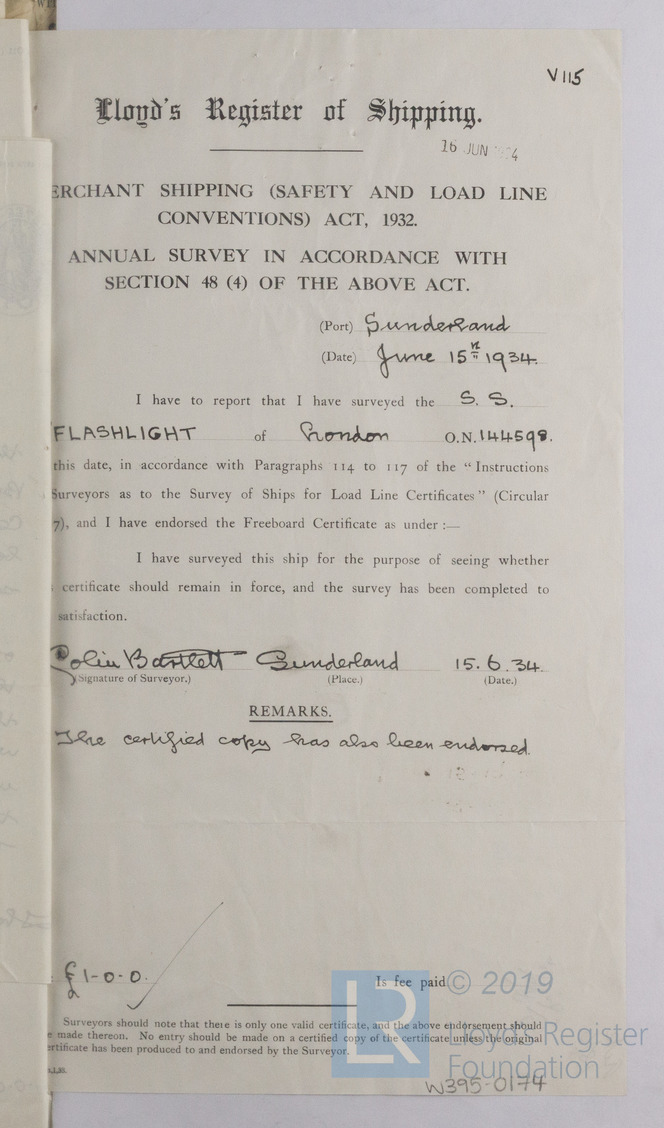 V 115
Lloyd's Register of Shipping.
16 JUN
ERCHANT SHIPPING (SAFETY AND LOAD LINE
CONVENTIONS) ACT, 1932.
ANNUAL SURVEY IN ACCORDANCE WITH
SECTION 48 (4) OF THE ABOVE ACT.
(Port) Sunderland
(Date) June 15th 1934.
I have to report that I have surveyed the S. S.
FLASHLIGHT of London O.N. 144598.
this date, in accordance with Paragraphs 114 to 117 of the "Instructions
Surveyors as to the Survey of Ships for Load Line Certificates" (Circular
7), and I have endorsed the Freeboard Certificate as under :—
I have surveyed this ship for the purpose of seeing whether
certificate should remain in force, and the survey has been completed to
satisfaction.
Colin Bartlett Sunderland 15.6.34.
(Signature of Surveyor.) (Place.) (Date.)
REMARKS.
The certified copy has also been endorsed.
£1-0-0.
Is fee paid
© 2019
Surveyors should note that there is only one valid certificate, and the above endorsement should
e made thereon. No entry should be made on a certified copy of the certificate unless the original
ertificate has been produced to and endorsed by the Surveyor.
LR
Lloyd's Register
Foundation
W395-0174